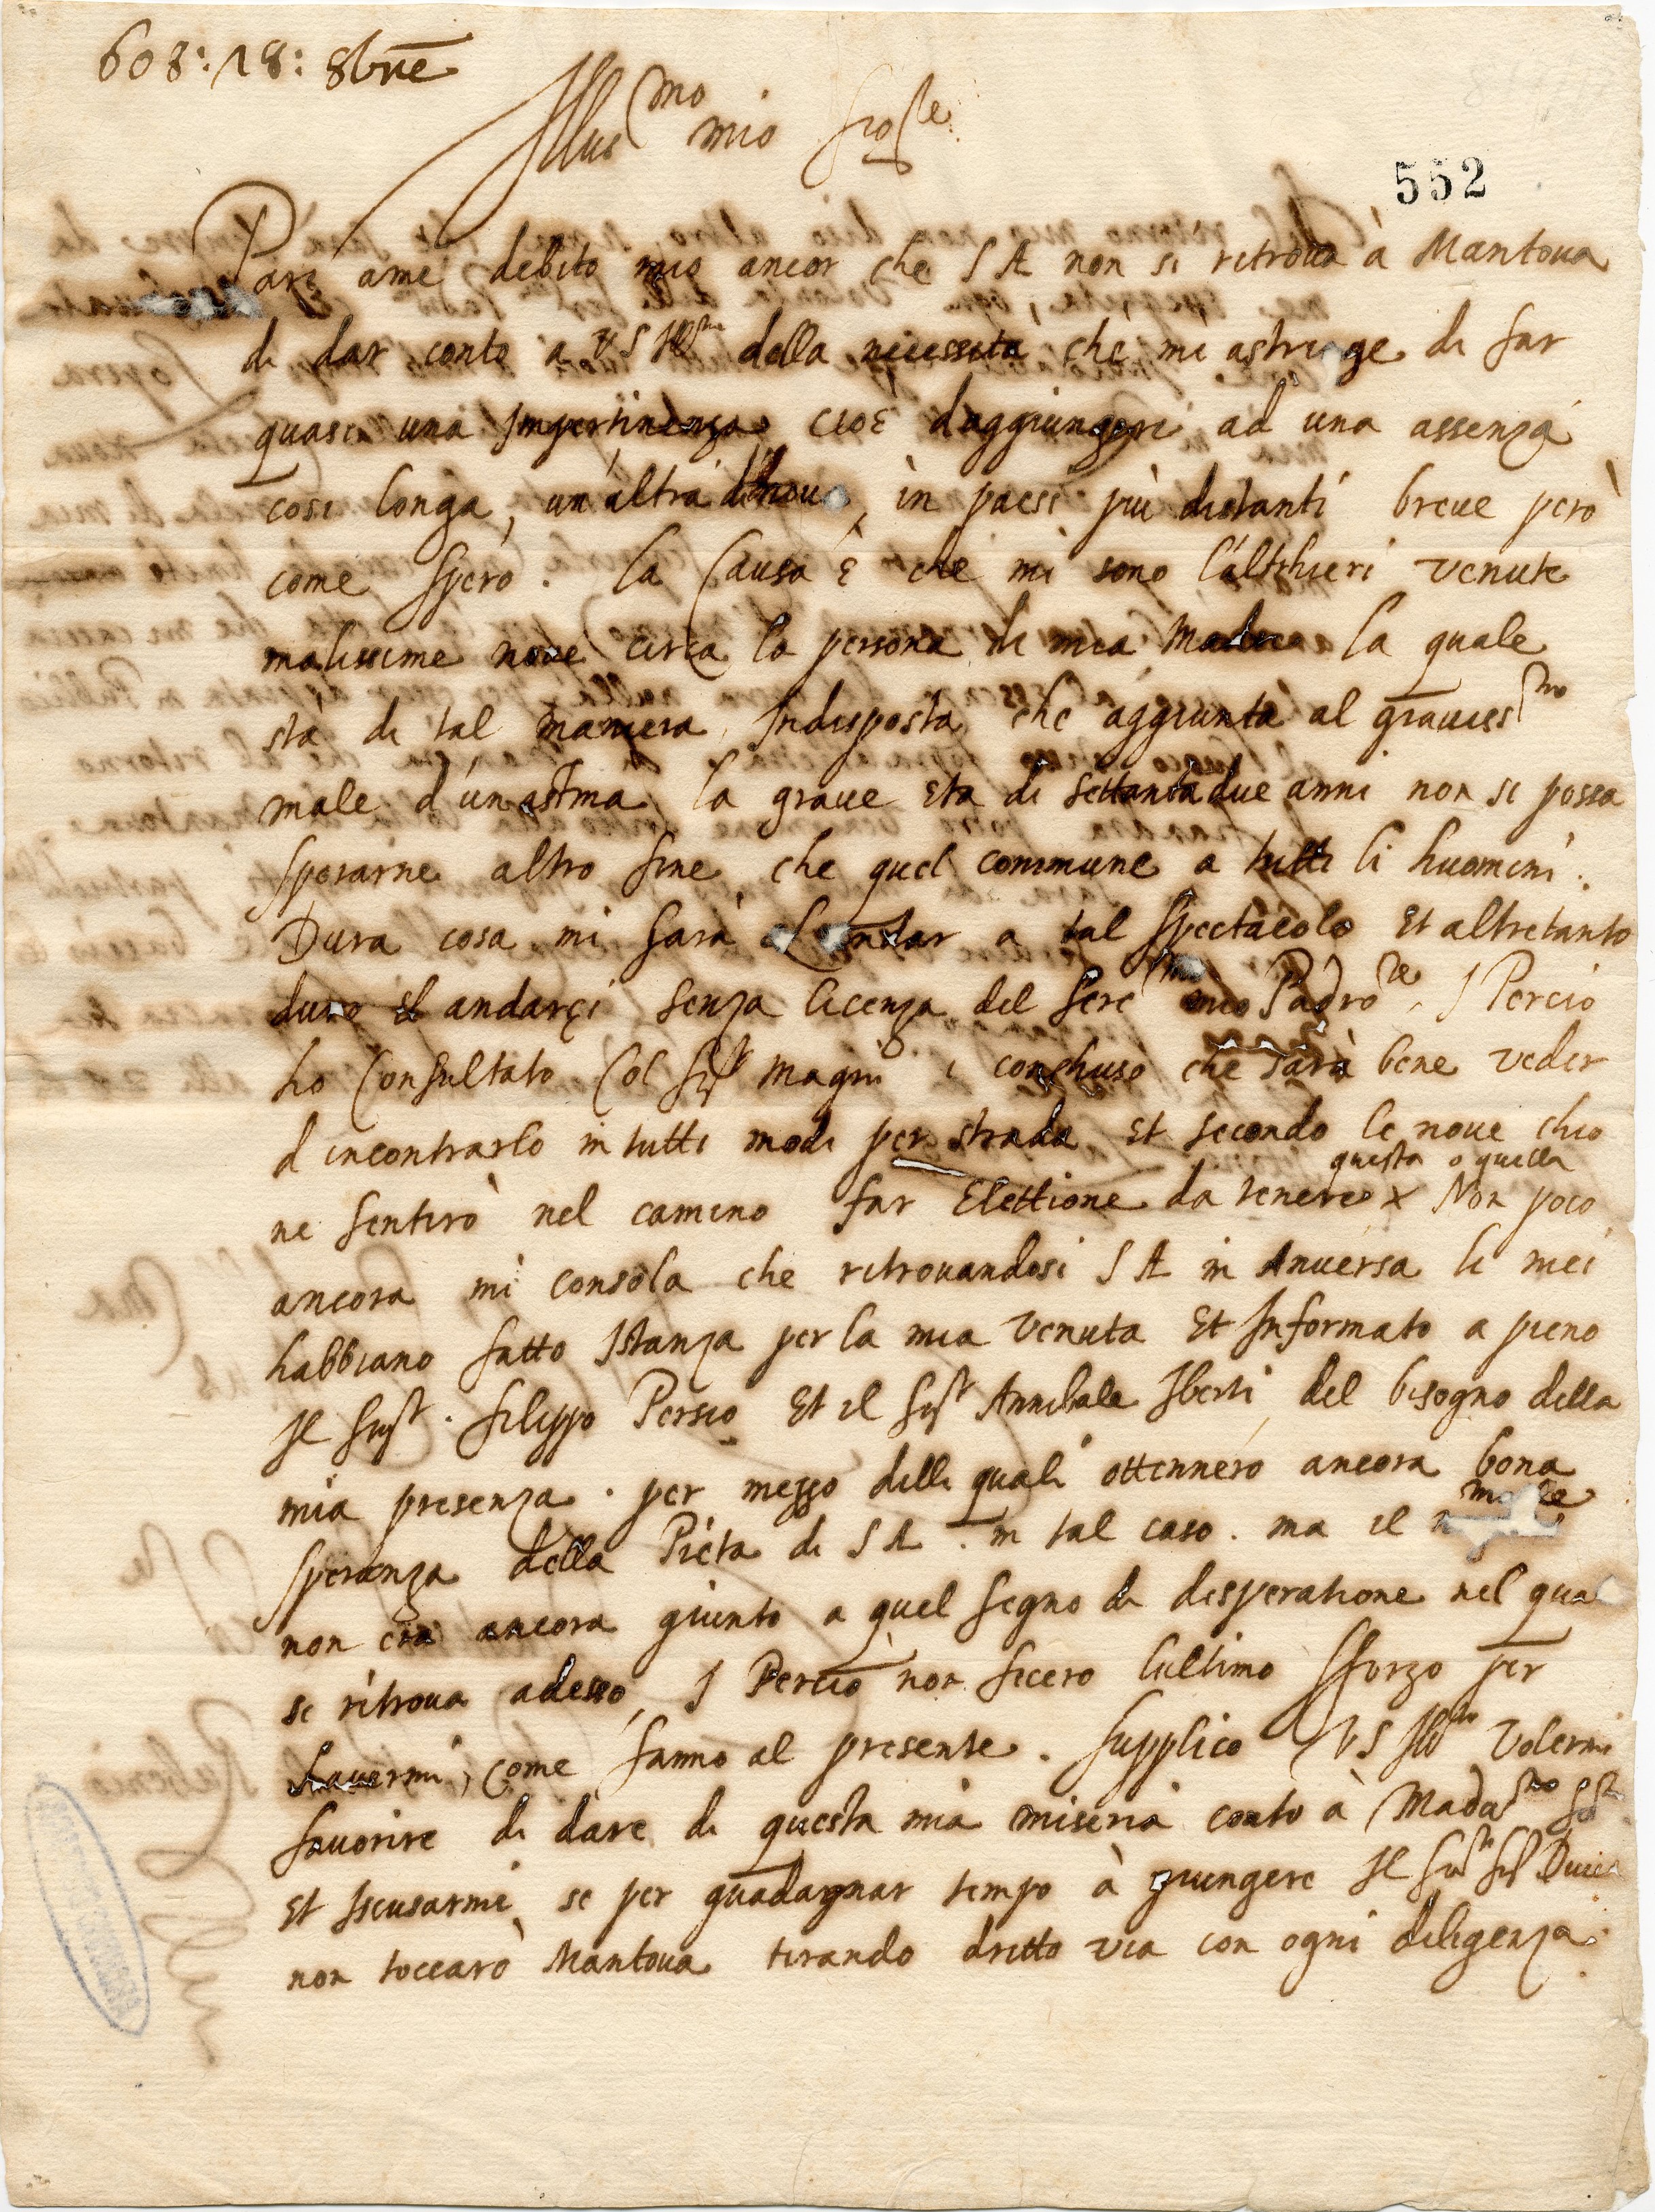 608: 28: 8bre
Illus mo mio sigre
552
Pare a me debito mio ancor che S A non si ritrova à Mantova
di dar conto a V S Illma della necessita che mi astringe di far
quasi una Impertinenza cioè d'aggiungere ad una assenza
cosi longa, un'altra di nouo, in paesi più distanti breve però
come spero. La Causa è che mi sono l'altrhieri venute
malissime nove circa la persona di mia Madre la quale
stà di tal maniera Indisposta che aggiunta al graviss mo
male d'un astma la grave eta di settanta due anni non si possa
sperarne altro fine che quel commune a tutti li huomini.
Dura cosa mi sarà andar a tal spectacolo et altretanto
duro andarci senza licenza del Sere mo mio Padro ne. I Percio
ho Consultato Col sigr Magni e conchiuso che sarà bene veder
d incontrarlo in tutti modi per strada et secondo le nove chio
ne sentirò nel camino far Elettione da tenere x Non poco
questa o quella
ancora mi consola che ritrouandosi S A in Anversa li miei
habbiano fatto Istanza per la mia venuta Et Informato a pieno
Il sigr. Filippo Persio Et il sigr Annibale Iberti del bisogno della
mia presenza. per mezzo delli quali ottennero ancora bona
speranza della Pieta di S A. in tal caso. ma il
male
non era ancora giunto a quel segno di desperatione nel qual
se ritrova adesso, I Perciò non fecero l'ultimo sforzo per
havermi, come fanno al presente. Supplico V S Illma volermi
favorire di dare di questa mia miseria conto à Mada ma
Et Iscusarmi se per guadagnar tempo à giungere Il
non toccarò Mantova tirando dritto via con ogni diligenza.